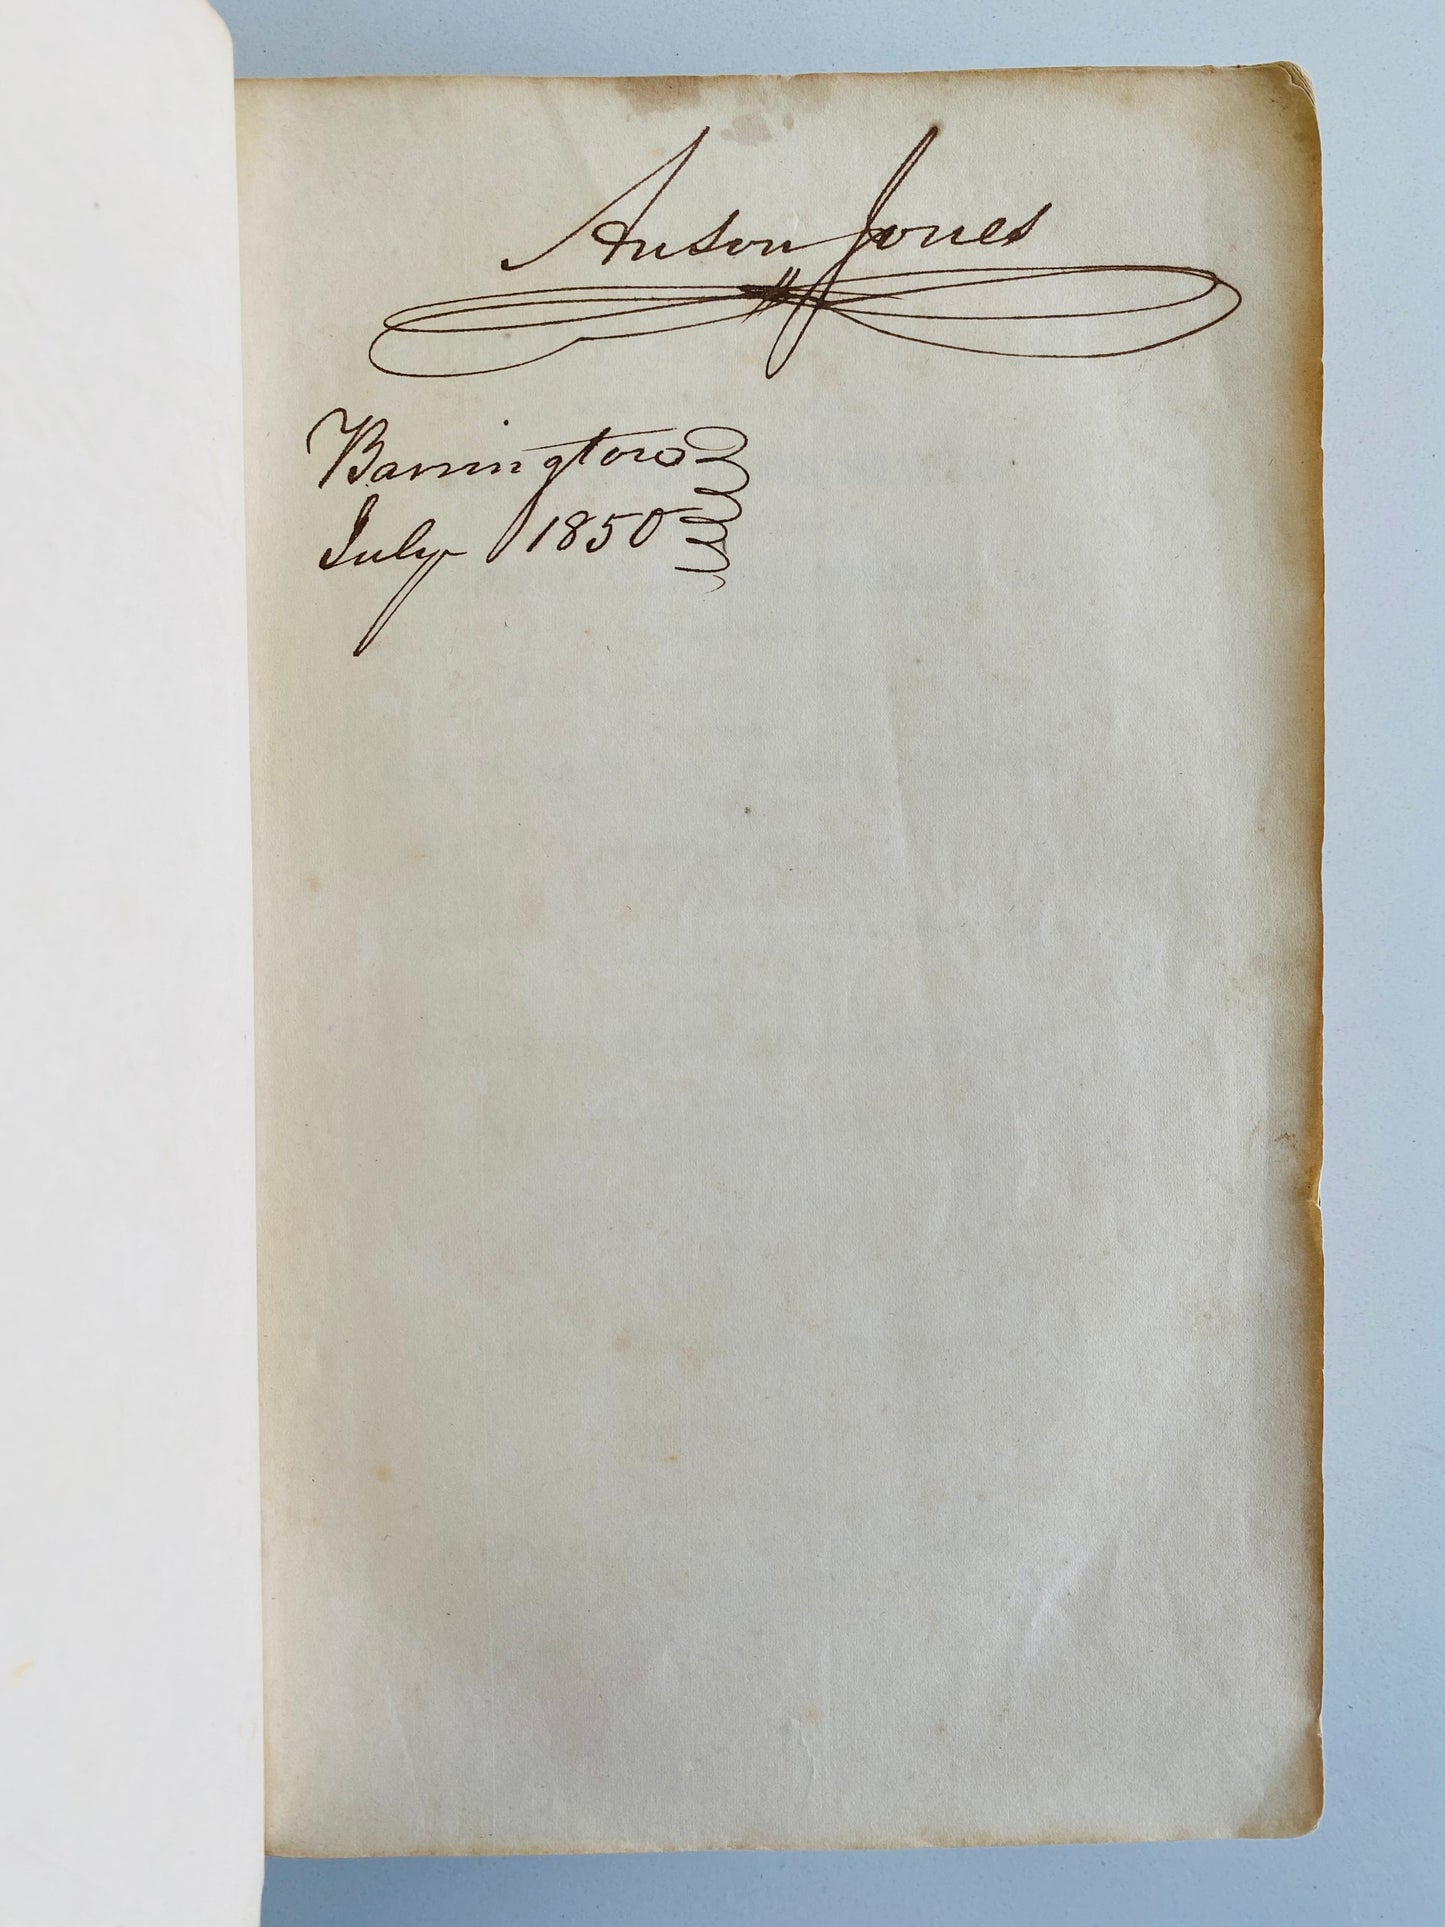 Anson Jones
Barrington
July 1850